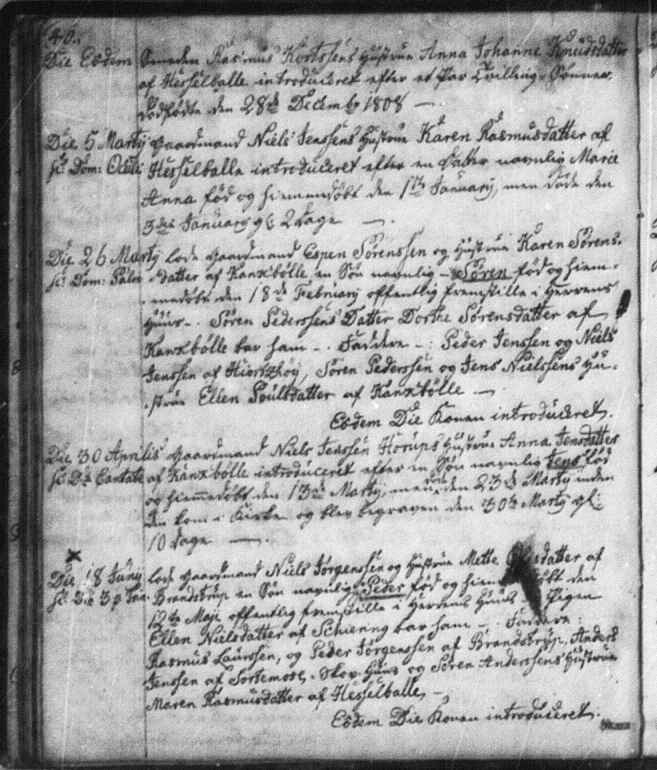 40.
Die Eodem Smeden Rasmus Kortsens Hustrue Anna Johanne Knudsdatter
af Hesselballe introduceret efter et Par Tvilling-Sønner
dødfødte den 28de Decembr 1808 —.
Die 5 Martij Gaardmand Niels Jenssens Hustrue Karen Rasmusdatter af
sc: Dom: Oculi Hesselballe introduceret efter en Datter navnlig Marie
Anna fød og hiemmedøbt den 1ste Januarij, men døde den
3die Januarij 2 Dage —.
Die 26 Martij lode Gaardmand Espen Sørenssen og Hustrue Karen Sørens-
sc: Dom: Palm -datter af Kankbølle en Søn navnlig — Søren fød og hiem-
-medøbt den 18de Februarij offentlig fremstille i Herrens
Huus -. Søren Pederssens Datter Dorthe Sørensdatter af
Kankbølle bar ham -. Faddere -: Peder Jenssen og Niels
Jenssen af Hiortshøy, Søren Pederssen og Jens Nielssens Hu-
-strue Ellen Poulsdatter af Kankbølle —.
Eodem Die Konen introduceret.
Die 30 Aprilis Gaardmand Niels Jenssen Horups Hustrue Anna Jensdatter
sc: Do Cantate af Kankbølle introduceret efter en Søn navnlig Jens fød
og hiemmedøbt den 13de Martij, men døde den 23de Martij inden
den kom i Kirke og blev begraven den 30te Martij
10 Dage —.
Die 18 Junij lode Gaardmand Niels Jørgenssen og Hustrue Mette
sc: Brandstrup en Søn navnlig Peder fød og den
12te Maji offentlig fremstille i Herrens Huus Pigen
Ellen Nielsdatter af Schiering bar ham -. Faddere:
Rasmus Laurssen, og Peder Jørgenssen af Brandstrup, Anders
Jenssen af Sortemose, Skov-Huus og Søren Anderssens Hustrue
Maren Rasmusdatter af Hesselballe, —
Eodem Die Konen introduceret.